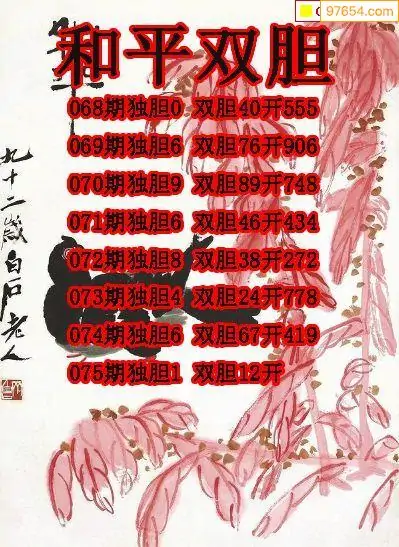 97654.com
和平双胆
068期独胆0 双胆40开555
069期独胆6 双胆76开906
070期独胆9 双胆89开748
071期独胆6 双胆46开434
072期独胆8 双胆38开272
073期独胆4 双胆24开778
074期独胆6 双胆67开419
075期独胆1 双胆12开
九十二岁白石老人